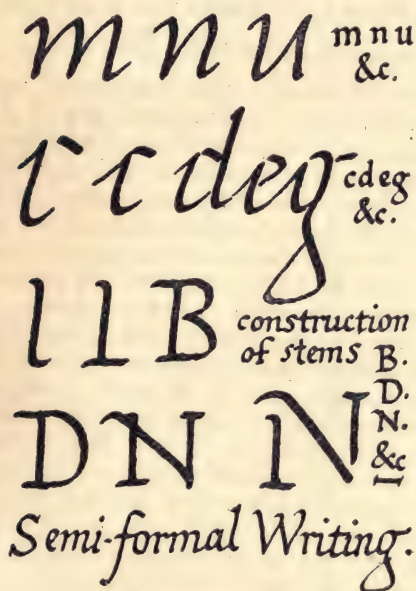 m n u m n u
&c.
ı ˋ c deg cdeg
&c.
l l B construction
of stems B.
D.
D N N N.
&c
Semi-formal Writing.